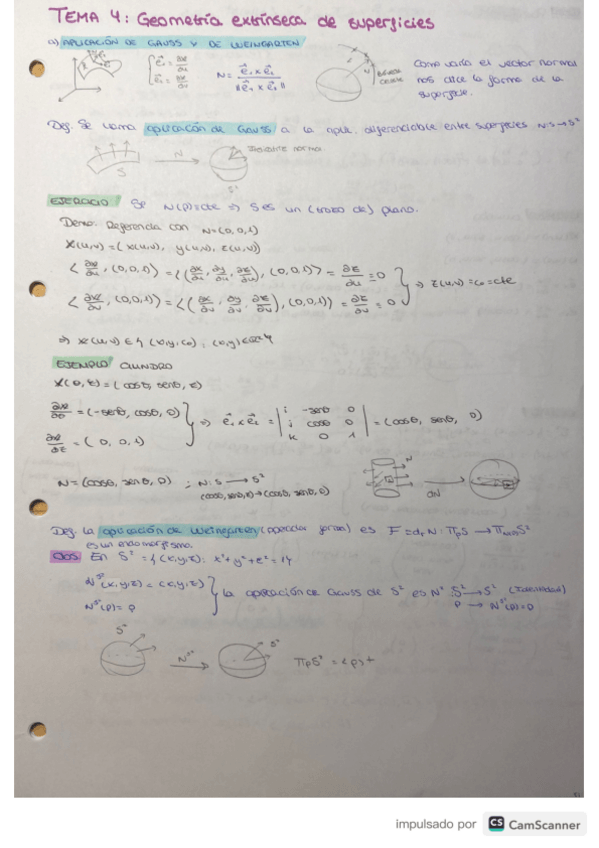 TEMA 4: Geometría extrínseca de superficies
a) APLICACIÓN DE GAUSS Y DE WEINGARTEN
{ e⃗₁ = ∂x/∂u
e⃗₂ = ∂x/∂v
N = e⃗₁ x e⃗₂ / ‖e⃗₁ x e⃗₂‖
Como varía el vector normal
nos dice la forma de la
superficie.
Def. Se llama aplicación de Gauss a la aplic. diferenciable entre superficies N: S → S²
N
S
S²
EJERCICIO Si N(p)=cte ⇒ S es un (trozo de) plano.
Demo. Referencia con N=(0,0,1)
X(u,v)=(x(u,v), y(u,v), z(u,v))
⟨∂x/∂u, (0,0,1)⟩=⟨(∂x/∂u, ∂y/∂u, ∂z/∂u), (0,0,1)⟩ = ∂z/∂u = 0
⟨∂x/∂v, (0,0,1)⟩=⟨(∂x/∂v, ∂y/∂v, ∂z/∂v), (0,0,1)⟩ = ∂z/∂v = 0 } ⇒ z(u,v)=c₀=cte
⇒ X(u,v) ∈ {(x,y,c₀) : (x,y)∈ℝ²}
EJEMPLO CILINDRO
X(θ, z)=(cosθ, senθ, z)
∂x/∂θ =(-senθ, cosθ, 0)
∂x/∂z = (0, 0, 1) } ⇒ e⃗₁ x e⃗₂ = | i -senθ 0
j cosθ 0
k 0 1 | = (cosθ, senθ, 0)
N=(cosθ, senθ, 0) ; N: S → S²
(cosθ, senθ, 0)
Def. La aplicación de Weingarten (operador forma) es F = dₚN : TₚS → T_N(p)S²
es un endomorfismo.
OBS En S² = {(x,y,z): x²+y²+z²=1}
N^S²(x,y,z)=(x,y,z)
N^S²(p)=p } la aplicación de Gauss de S² es N^S²: S² → S² (Identidad)
p → N^S²(p)=p
S²
N^S²
S²
TₚS² = ⟨p⟩⊥
impulsado por CS CamScanner